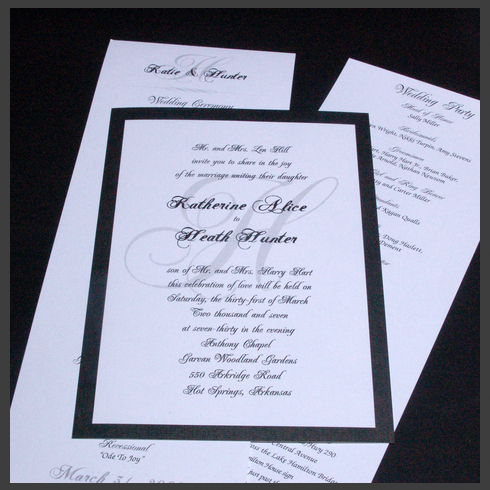 Katie & Hunter
Wedding Ceremony
Mr. and Mrs. Len Hill
invite you to share in the joy
of the marriage uniting their daughter
Katherine Alice
to
Heath Hunter
son of Mr. and Mrs. Harry Hart
this celebration of love will be held on
Saturday, the thirty-first of March
Two thousand and seven
at seven-thirty in the evening
Anthony Chapel
Garvan Woodland Gardens
550 Arkridge Road
Hot Springs, Arkansas
Recessional
"Ode To Joy"
March
Wedding Party
Maid of Honor
Sally Miller
Bridesmaids
Nikki Turpin, Amy Stevens
Arkansas Newsom
Groomsmen
Harry Hart Jr., Brian Baker,
Harvey
and Ring Bearer
and Carter Miller
Kagan Qualls
Doug Haslett,
Hwy 290
Central Avenue
the Lake Hamilton Bridge
House sign